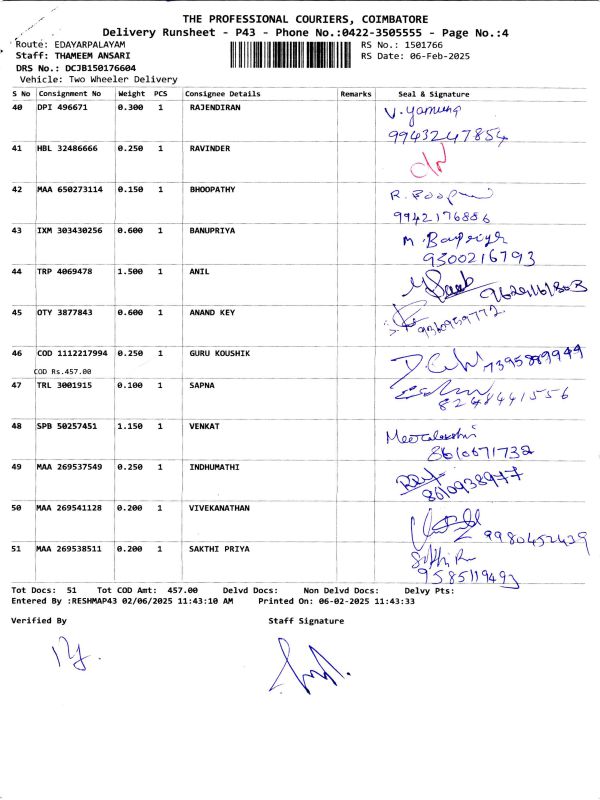 THE PROFESSIONAL COURIERS, COIMBATORE
Delivery Runsheet - P43 - Phone No.:0422-3505555 - Page No.:4
Route: EDAYARPALAYAM RS No.: 1501766
Staff: THAMEEM ANSARI RS Date: 06-Feb-2025
DRS No.: DCJB150176604
Vehicle: Two Wheeler Delivery
S No Consignment No Weight PCS Consignee Details Remarks Seal & Signature
40 DPI 496671 0.300 1 RAJENDIRAN V. Yamuna
9943247854
41 HBL 32486666 0.250 1 RAVINDER
42 MAA 650273114 0.150 1 BHOOPATHY R.
9942176886
43 IXM 303430256 0.600 1 BANUPRIYA M.
9300216793
44 TRP 4069478 1.500 1 ANIL
45 OTY 3877843 0.600 1 ANAND KEY
46 COD 1112217994 0.250 1 GURU KOUSHIK 7395889949
COD Rs.457.00
47 TRL 3001915 0.100 1 SAPNA
8248441556
48 SPB 50257451 1.150 1 VENKAT
8610671732
49 MAA 269537549 0.250 1 INDHUMATHI
8610938977
50 MAA 269541128 0.200 1 VIVEKANATHAN 9980452439
51 MAA 269538511 0.200 1 SAKTHI PRIYA
Tot Docs: 51 Tot COD Amt: 457.00 Delvd Docs: Non Delvd Docs: Delvy Pts:
Entered By :RESHMAP43 02/06/2025 11:43:10 AM Printed On: 06-02-2025 11:43:33
Verified By Staff Signature